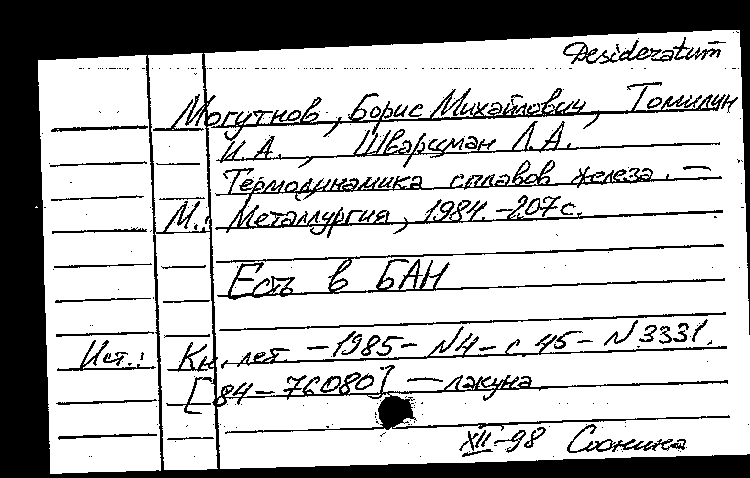 Desideratum
Могутнов, Борис Михайлович, Томилин
И.А., Шварцман Л.А.
Термодинамика сплавов железа. —
М.: Металлургия, 1984. - 207 с.
Есть в БАН
Ист.: Кн. лет. - 1985 - N4 - с. 45 - N 3331.
[84-76080] — лакуна
XII-98 Сонина